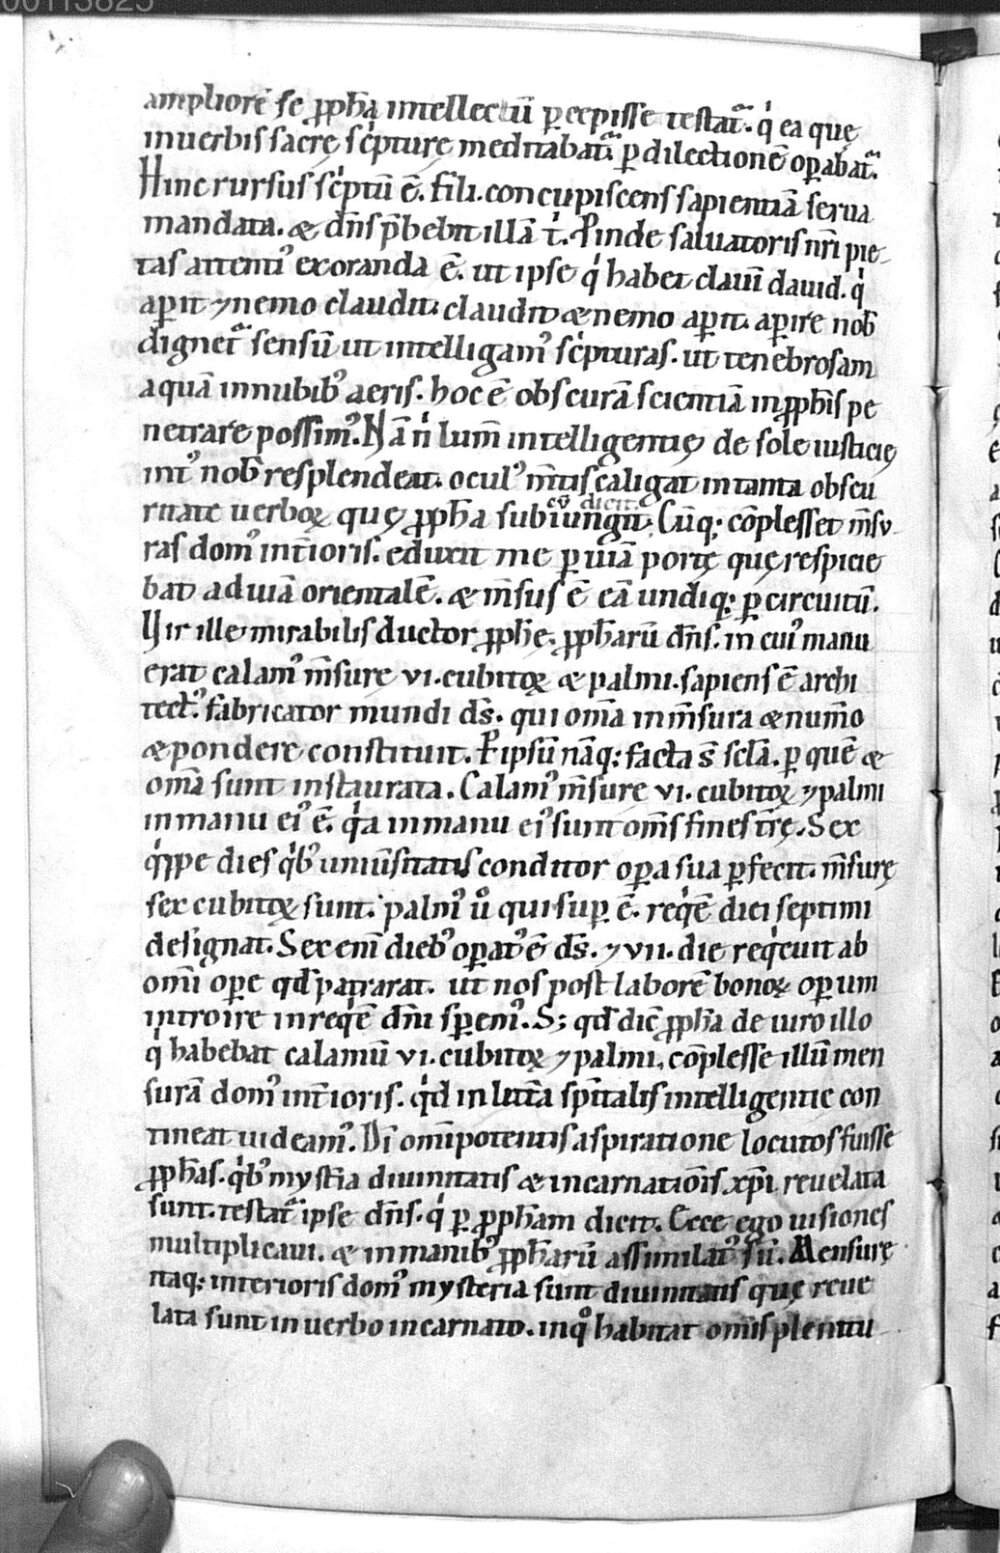 00113825
ampliorē se ꝓph̄a intellectū ꝑcepisse testat᷑. qͥ ea quę
in uerbis sacrę scͥpturę meditabat᷑ ꝑ dilectionē oꝑabat᷑.
Hinc rursus scͥptū ē. fili. concupiscens sapientiā serua
mandata. ⁊ dn̄s p̄bebit illā t͛. Proinde saluatoris nr̄i pie-
tas attentiꝰ exoranda ē. ut ipse qͥ habet clauī dauid. qͥ
aꝑit ⁊ nemo claudit. claudit & nemo aꝑit. aꝑire nob̄
dignet᷑ sensū ut intelligamꝰ scͥpturas. ut tenebrosam
aquā in nubibꝰ aeris. hoc ē obscurā scientiā in ꝓph̄is pe
netrare possimꝰ. Nā nͥ lum̄ intelligentię de sole iusticię
intꝰ nob̄ resplendeat. oculꝰ m̄tis caligat in tanta obscu
ritate uerboꝝ quę ꝓph̄a subiungit;
cū dicit.
Cūq; cōplesset m̄su-
ras domꝰ int̄ioris. eduxit me ꝑ uiā portę quę respicie
bat ad uiā orientalē. & m̄sus ē eā undiq; ꝑ circuitū.
Vir ille mirabilis ductor ꝓph̄ę. ꝓph̄arū dn̄s. in cuiꝰ manu
erat calamꝰ m̄surę vi. cubitoꝝ & palmi. sapiens ē archi
tectꝰ. fabricator mundi ds̄. qui om̄a in m̄sura & num̄o
& pondere constituit. P ipsū nāq; facta s̄ scl̄a. ꝑ quē &
om̄a sunt instaurata. Calamꝰ m̄surę vi. cubitoꝝ ⁊ palmi
in manu eiꝰ ē. qͥa in manu eiꝰ sunt om̄s fines t̄rę. Sex
qͥppe dies qͥbꝰ uniūsitatis conditor oꝑa sua ꝑfecit. m̄surę
sex cubitoꝝ sunt. palmꝰ uͦ qui suꝑ ē. reqͥē diei septimi
designat. Sex enī diebꝰ oꝑatꝰ ē ds̄. ⁊ vii. die reqͥeuit ab
om̄i oꝑe qd̄ patrarat. ut nos post laborē bonoꝝ oꝑum
introire in reqͥē dn̄i sꝑemꝰ. S; qd̄ dic̄ ꝓph̄a de uiro illo
qͥ habebat calamū vi. cubitoꝝ ⁊ palmi, cōplesse illū men
surā domꝰ int̄ioris. qͥd in litt̄a spīt̄alis intelligentie con
tineat uideamꝰ. Dī omīpotentis aspiratione locutos fuisse
ꝓph̄as. qͥbꝰ myst̄ia diuinitatis & incarnatiōis xp̄i reuelata
sunt. testat᷑ ipse dn̄s. qͥ ꝑ ꝓph̄am dicit. Ecce ego uisiones
multiplicaui. & in manibꝰ ꝓph̄arū assimilatꝰ sū. Mensurę
itaq; interioris domꝰ mysteria sunt diuinitatis quę reue
lata sunt in uerbo incarnato. in qͦ habitat om̄is plenitu